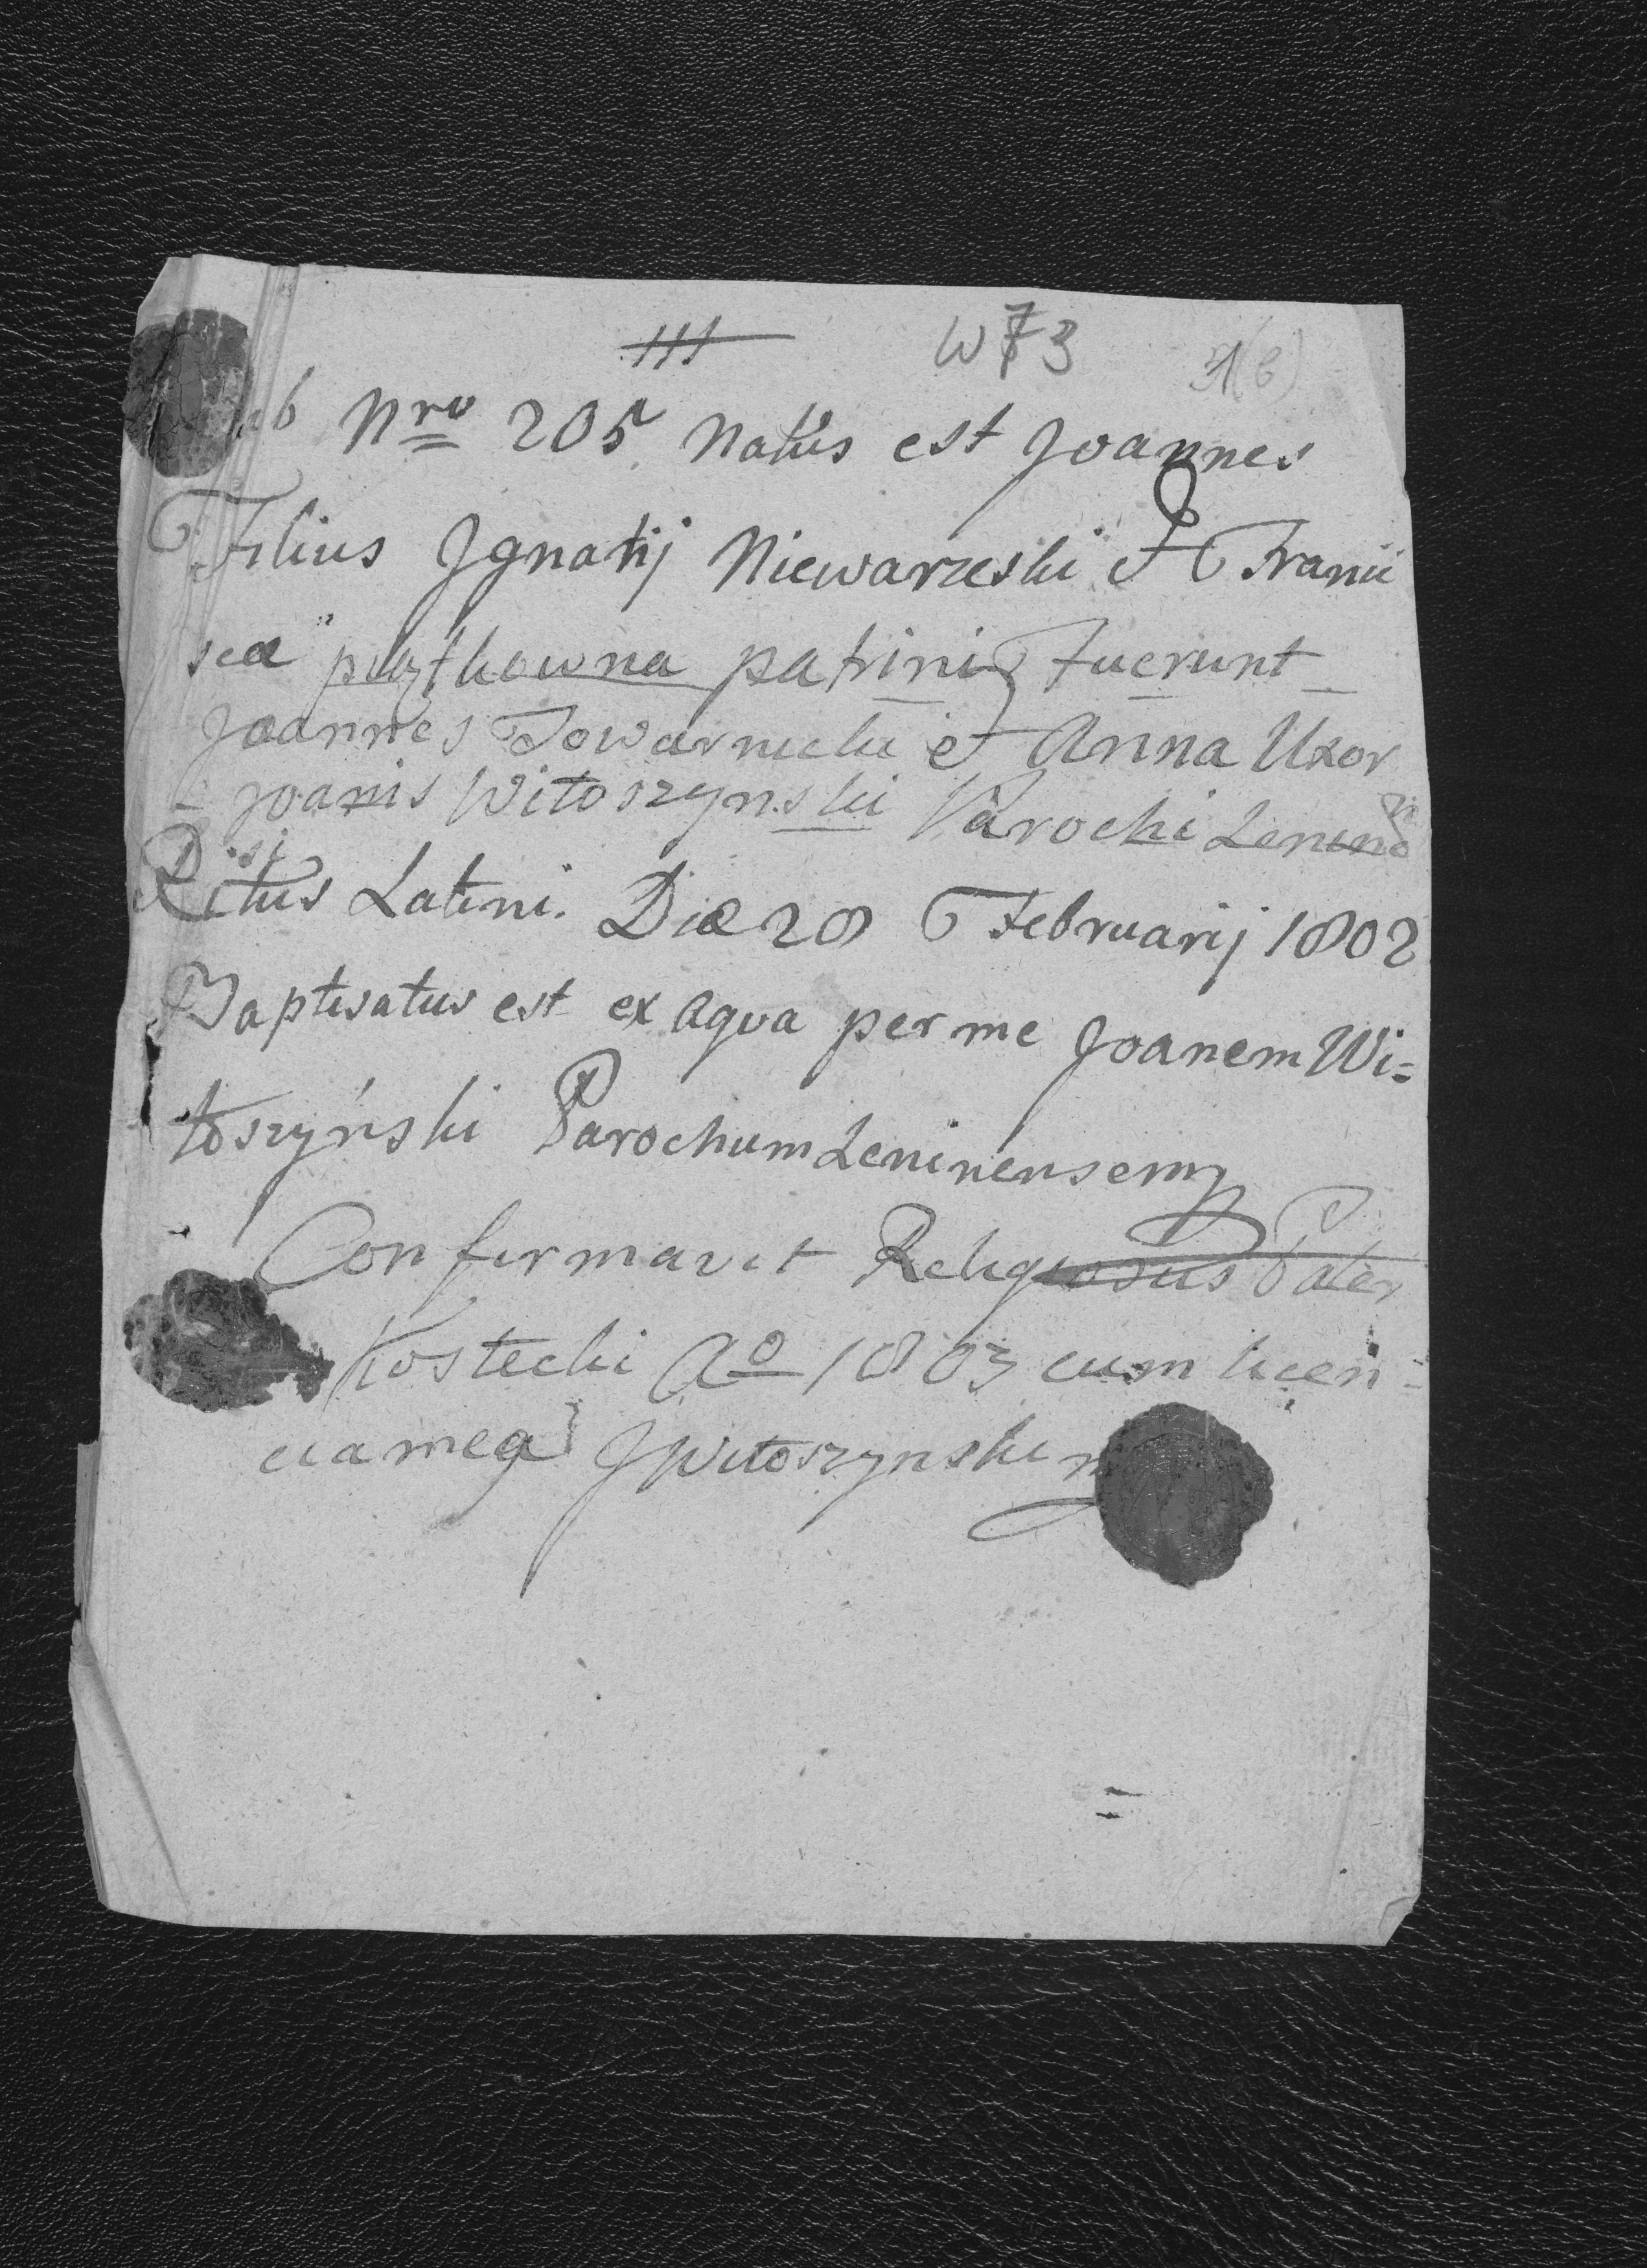 W 73
ub Nro 205 Natus est Joannes
Filius Jgnatij Niewarzeski Et Franci
scæ patrini Fuerunt
Joannes Towarnicki et Anna Uxor
Joanis Witoszynski Parochi Lenine
Ritus Latini. Die 28 Februarij 1802
Baptisatus est ex aqva per me Joanem Wi=
toszyński Parochum Leninensem
Confirmavit Religiosus Pater
Kostecki Ao 1803 cum licen=
cia mea JWitoszynski